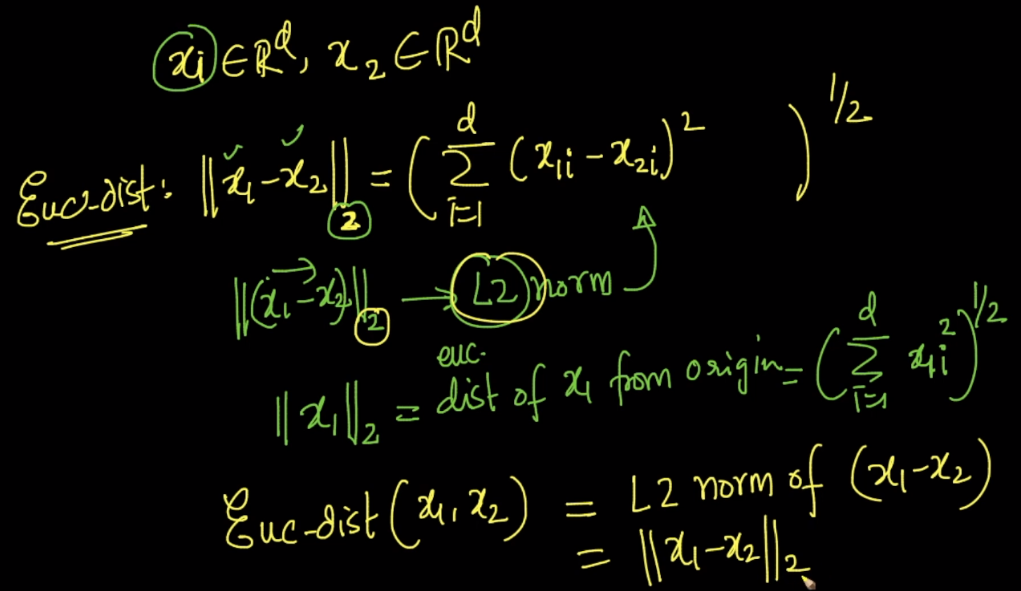 x₁ ∈ ℝᵈ, x₂ ∈ ℝᵈ
Euc-dist: ||x₁ - x₂||₂ = ( Σᵢ₌₁ᵈ (x₁ᵢ - x₂ᵢ)² )^1/2
||(x₁ - x₂)||₂ → L2 norm
||x₁||₂ = euc. dist of x₁ from origin = ( Σᵢ₌₁ᵈ x₁ᵢ² )^1/2
Euc-dist (x₁, x₂) = L2 norm of (x₁ - x₂)
= ||x₁ - x₂||₂